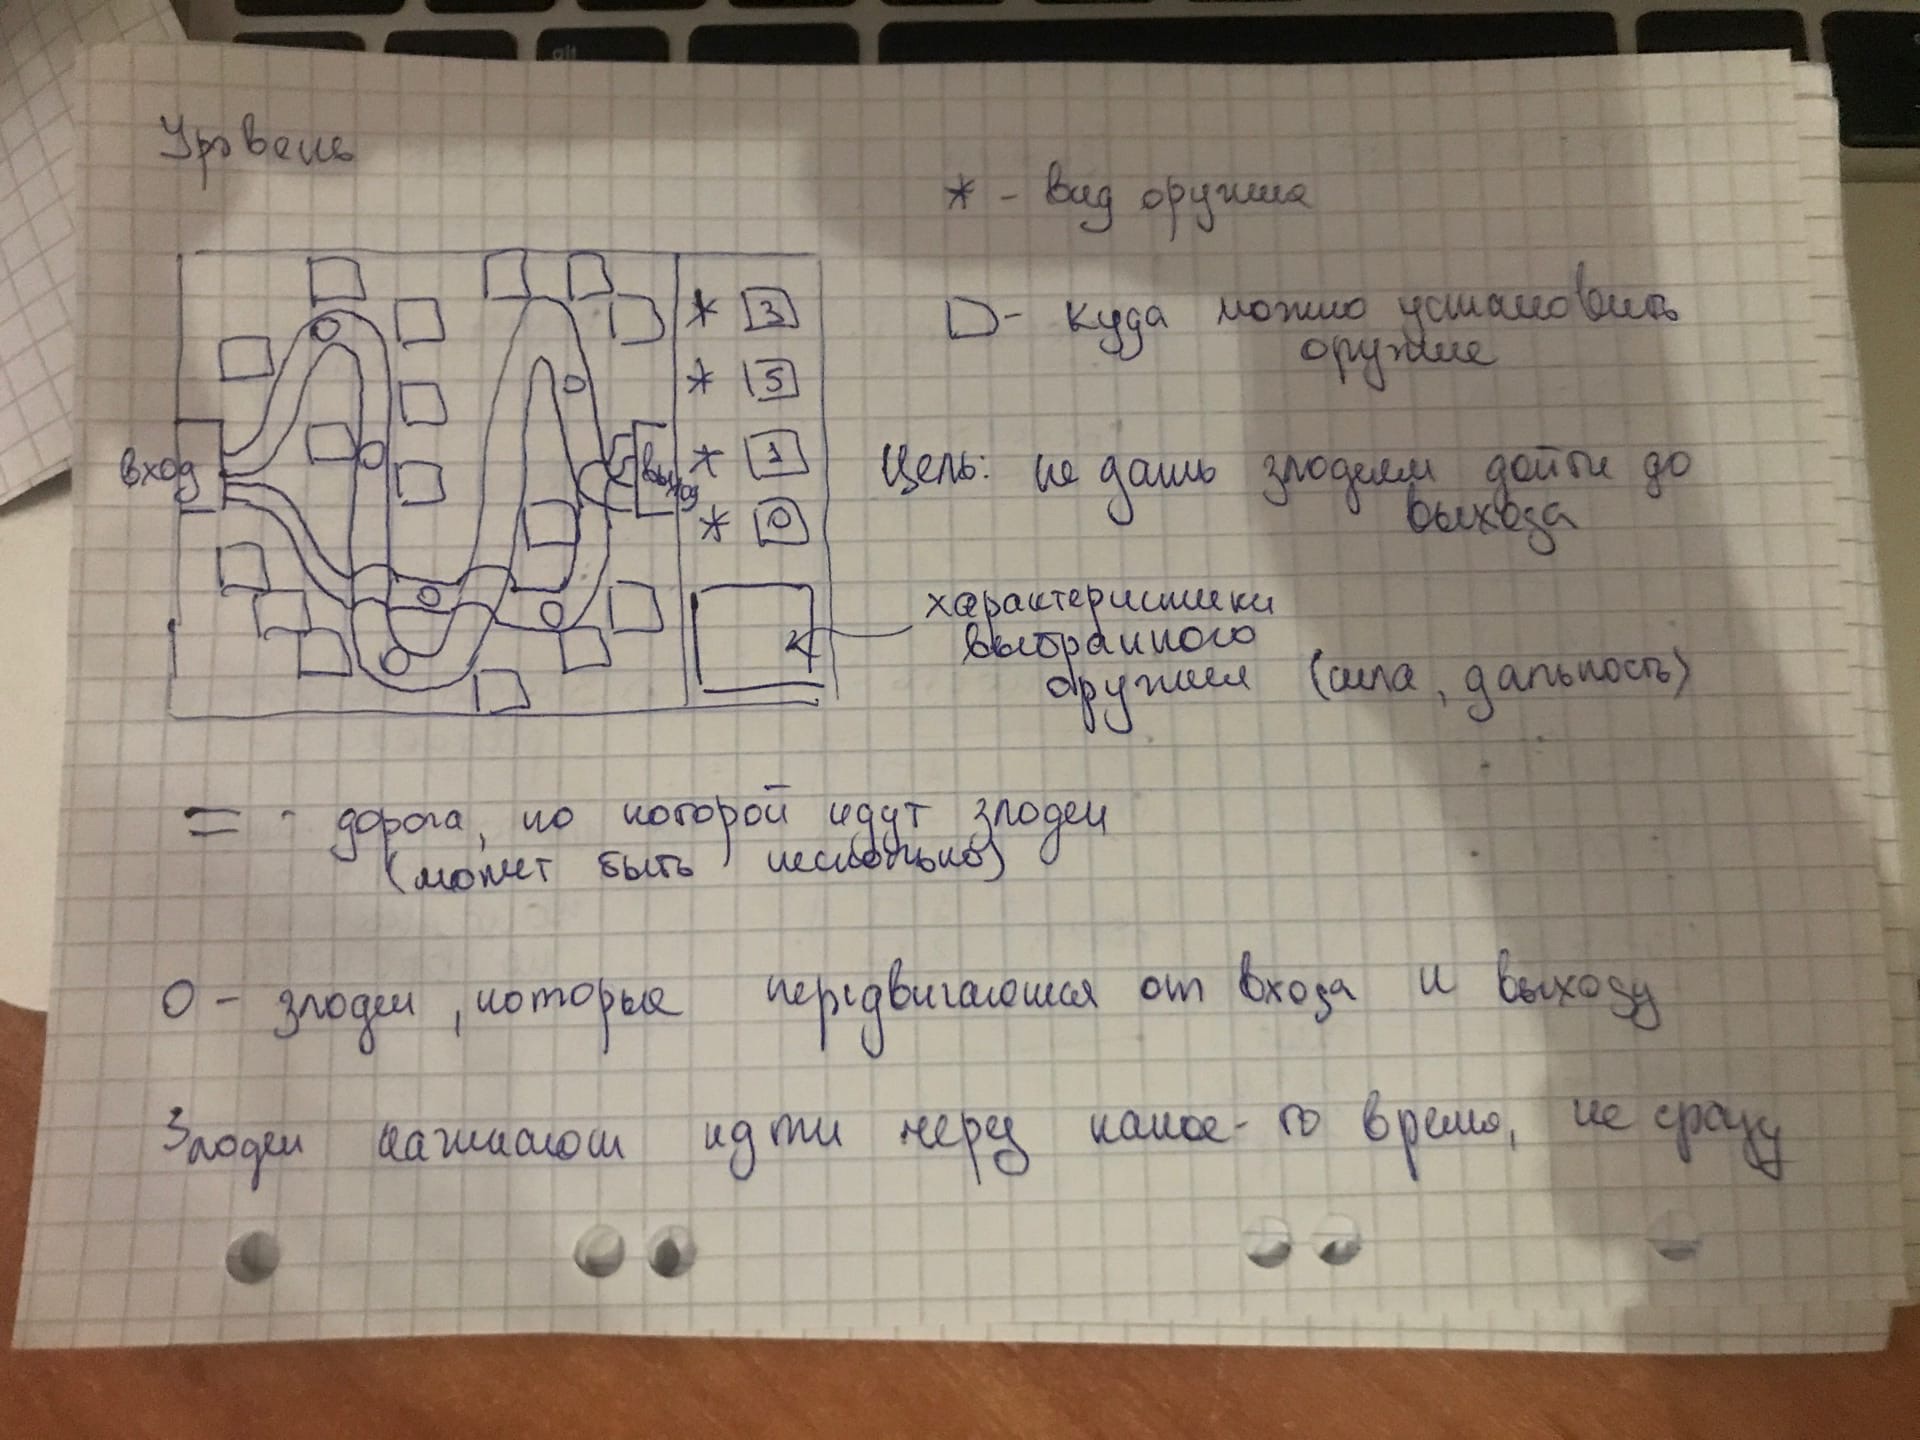 Уровень
* - вид оружия
□ - куда можно установить
оружие
* 3
* 5
* 1
* 0
вход
выход
Цель: не дать злодеям дойти до
выхода
характеристики
выбранного
оружия (сила, дальность)
= - дорога, по которой идут злодеи
(может быть несколько)
О - злодеи, которые передвигаются от входа к выходу
Злодеи начинают идти через какое-то время, не сразу